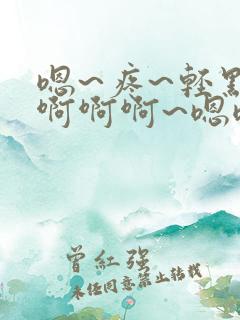 嗯～疼～轻
啊啊啊～嗯
曾紅强
未经同意禁止转载